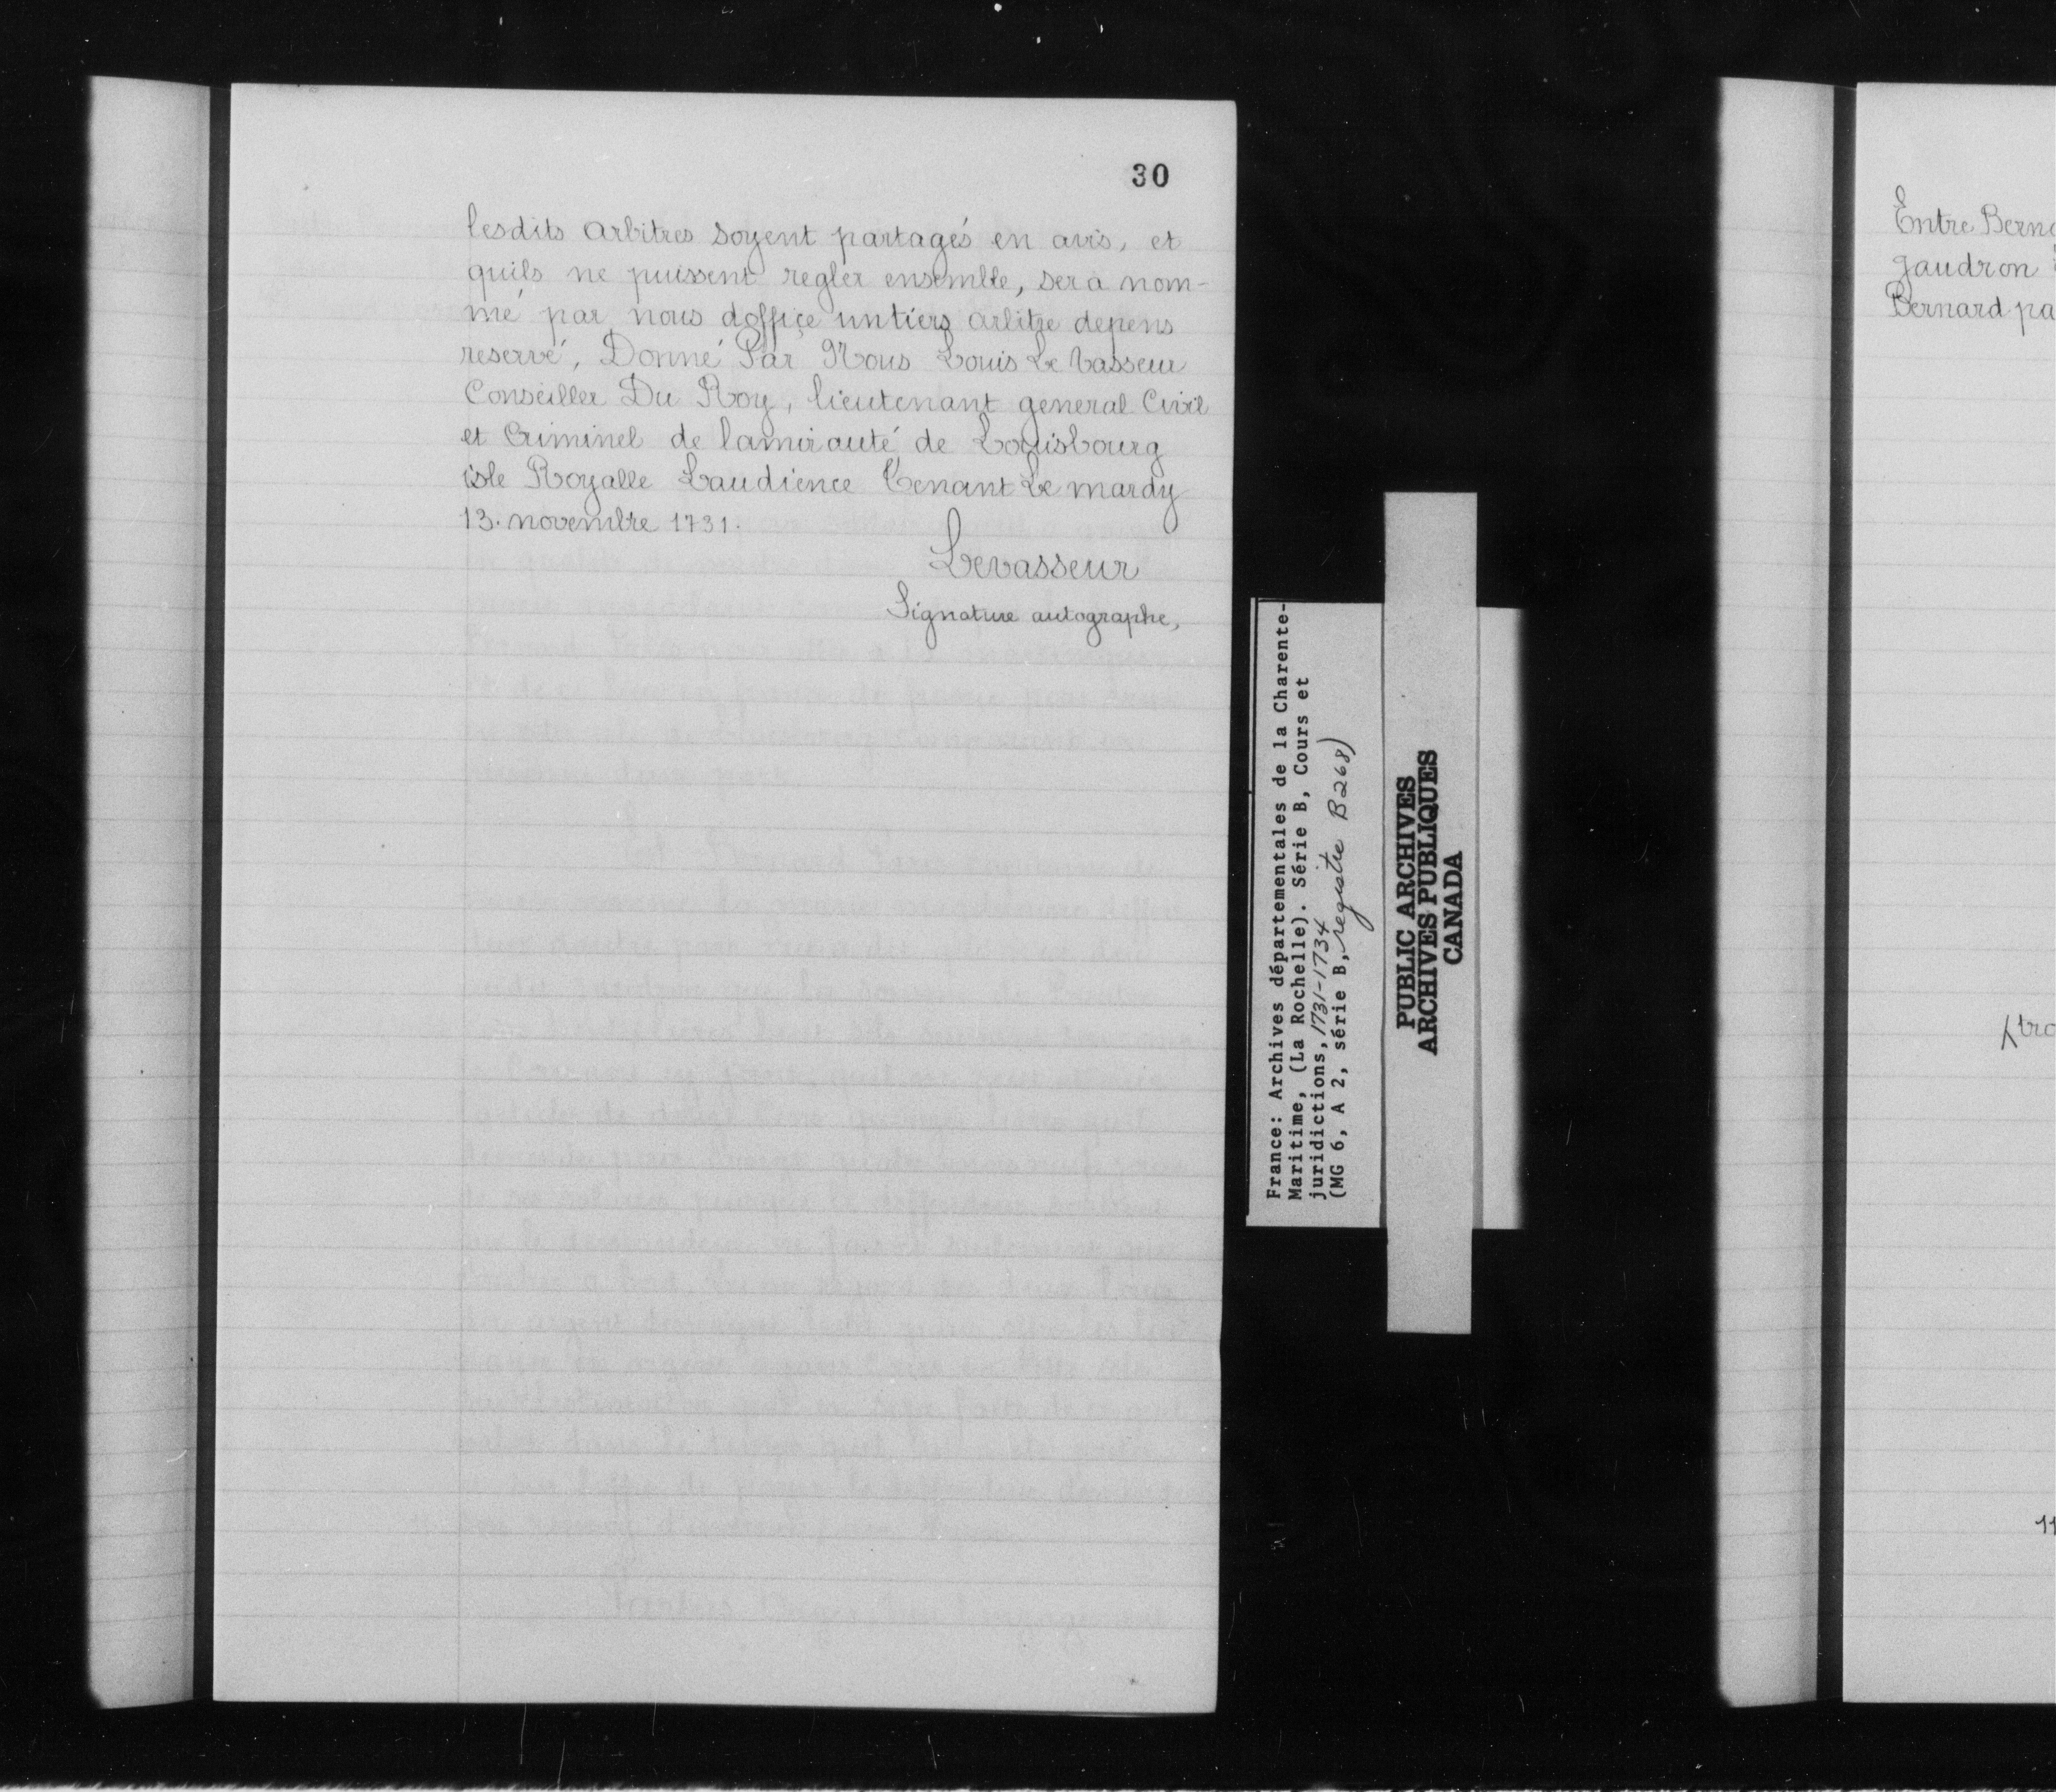 30
lesdits arbitres soyent partagés en avis, et
quils ne puissent regler ensemble, sera nom-
mé par nous doffiçe untiers arbitre depens
reservé, Donné Par Nous Louis Le Vasseur
Conseiller Du Roy, lieutenant general Civil
et Criminel de lamirauté de Louisbourg
isle Royalle Laudience Tenant Le mardy
13. novembre 1731.
Levasseur
Signature autographe,
France: Archives départementales de la Charente-
Maritime, (La Rochelle). Série B, Cours et
juridictions, 1731-1734
(MG 6, A 2, série B, registre B268)
PUBLIC ARCHIVES
ARCHIVES PUBLIQUES
CANADA
Entre Berna
gaudron
Bernard pa
tro
11